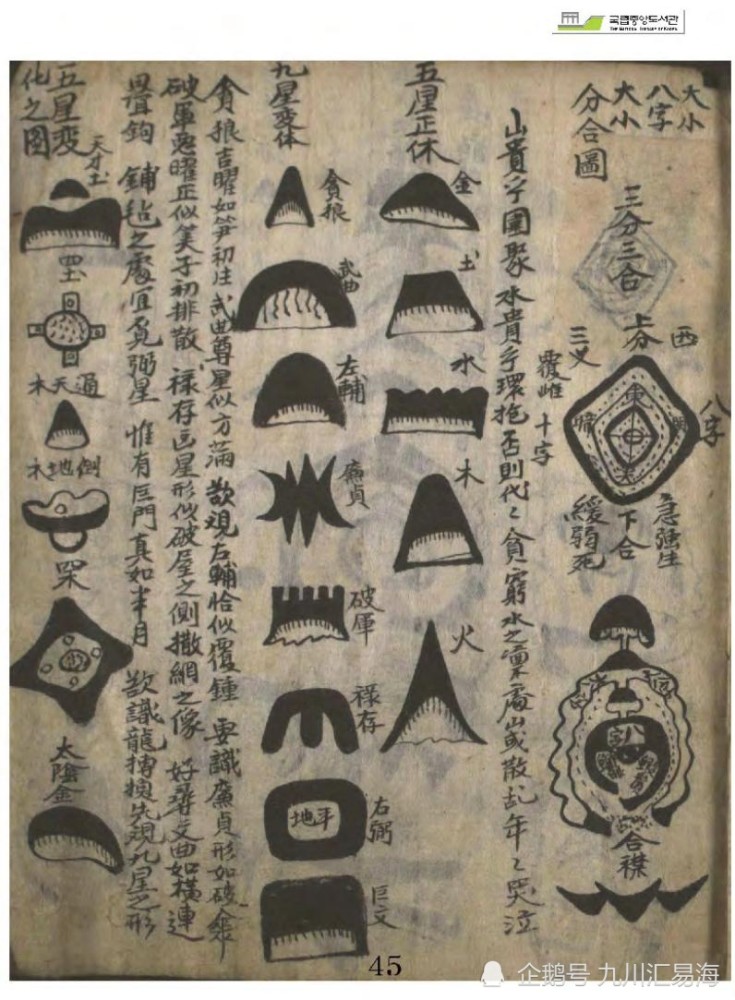 국립중앙도서관
THE NATIONAL LIBRARY OF KOREA
大小
八字
大小
分合圖
三分三合
上分
西
三叉
八字
十字
下合
急强生
緩弱死
八字
合襟
山貴乎團聚 水貴乎環抱 否則代〻貧窮 水之 山或散乱 年〻哭泣
五星正体
金
土
水
木
火
九星变体
貪狼
武曲
左輔
廉貞
破军
祿存
右弼
地平
巨文
貪狼吉曜如笋初生 武曲尊星似方滿 欲視左輔恰似覆鍾 要識廉貞形如破傘
破軍悪曜正似 子初排散 祿存 星形似破屋之側撒網之像 好尋文曲如横連
疊鈎 鋪毡之處宜覓弼星 惟有巨門真如半月 欲識龍 換先視九星之形
五星変
化之圖
天才土
四土
木天通
木地倒
四
太陰金
45
企鹅号 九川汇易海